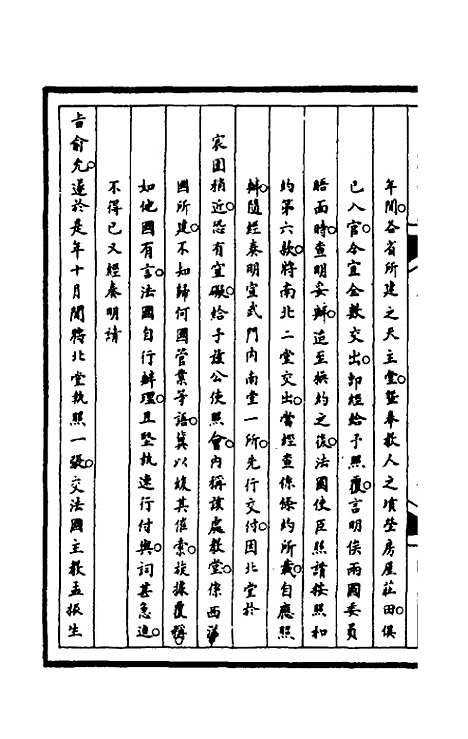 年間各省所建之天主堂暨奉教人之墳塋房屋莊田俱
已入官今宜全數交出卽經給予照覆言明俟兩國委員
晤面時查明妥辦迨至換約之後法國使臣照請按照和
約第六款將南北二堂交出當經查係條約所載自應照
辦隨經奏明宣武門內南堂一所先行交付因北堂於
宸囿稍近恐有窒礙給予該公使照會內稱該處教堂係西洋
國所建不知歸何國管業等語冀以緩其催索旋據覆稱
如他國有言法國自行辦理且堅執速行付與詞甚急迫
不得已又經奏明請
旨俞允遂於是年十月間將北堂執照一張交法國主教孟振生